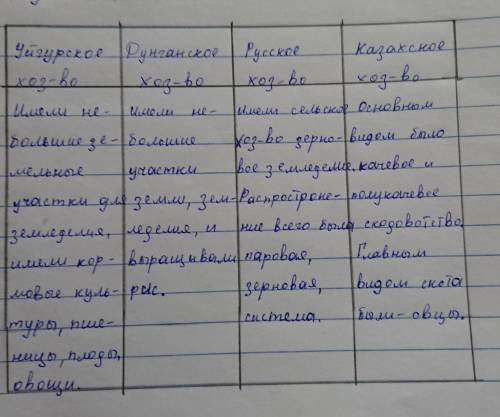 Уйгурское хоз-во
Дунганское хоз-во
Русское хоз-во
Казахское хоз-во
Имели не-
большие зе-
мельные
участки для
земледелия,
имели кор-
мовые куль-
туры, пше-
ницы, плоды,
овощи.
имели не-
большие
участки
земли, зем-
леделия, и
выращивали
рис.
имели сельское
хоз-во зерно-
вое земледелие.
Распростране-
ние всего была
паровая,
зерновая,
система.
Основным
видем было
качевое и
полукачевое
скодовотство.
Главным
видем скота
были-овцы.